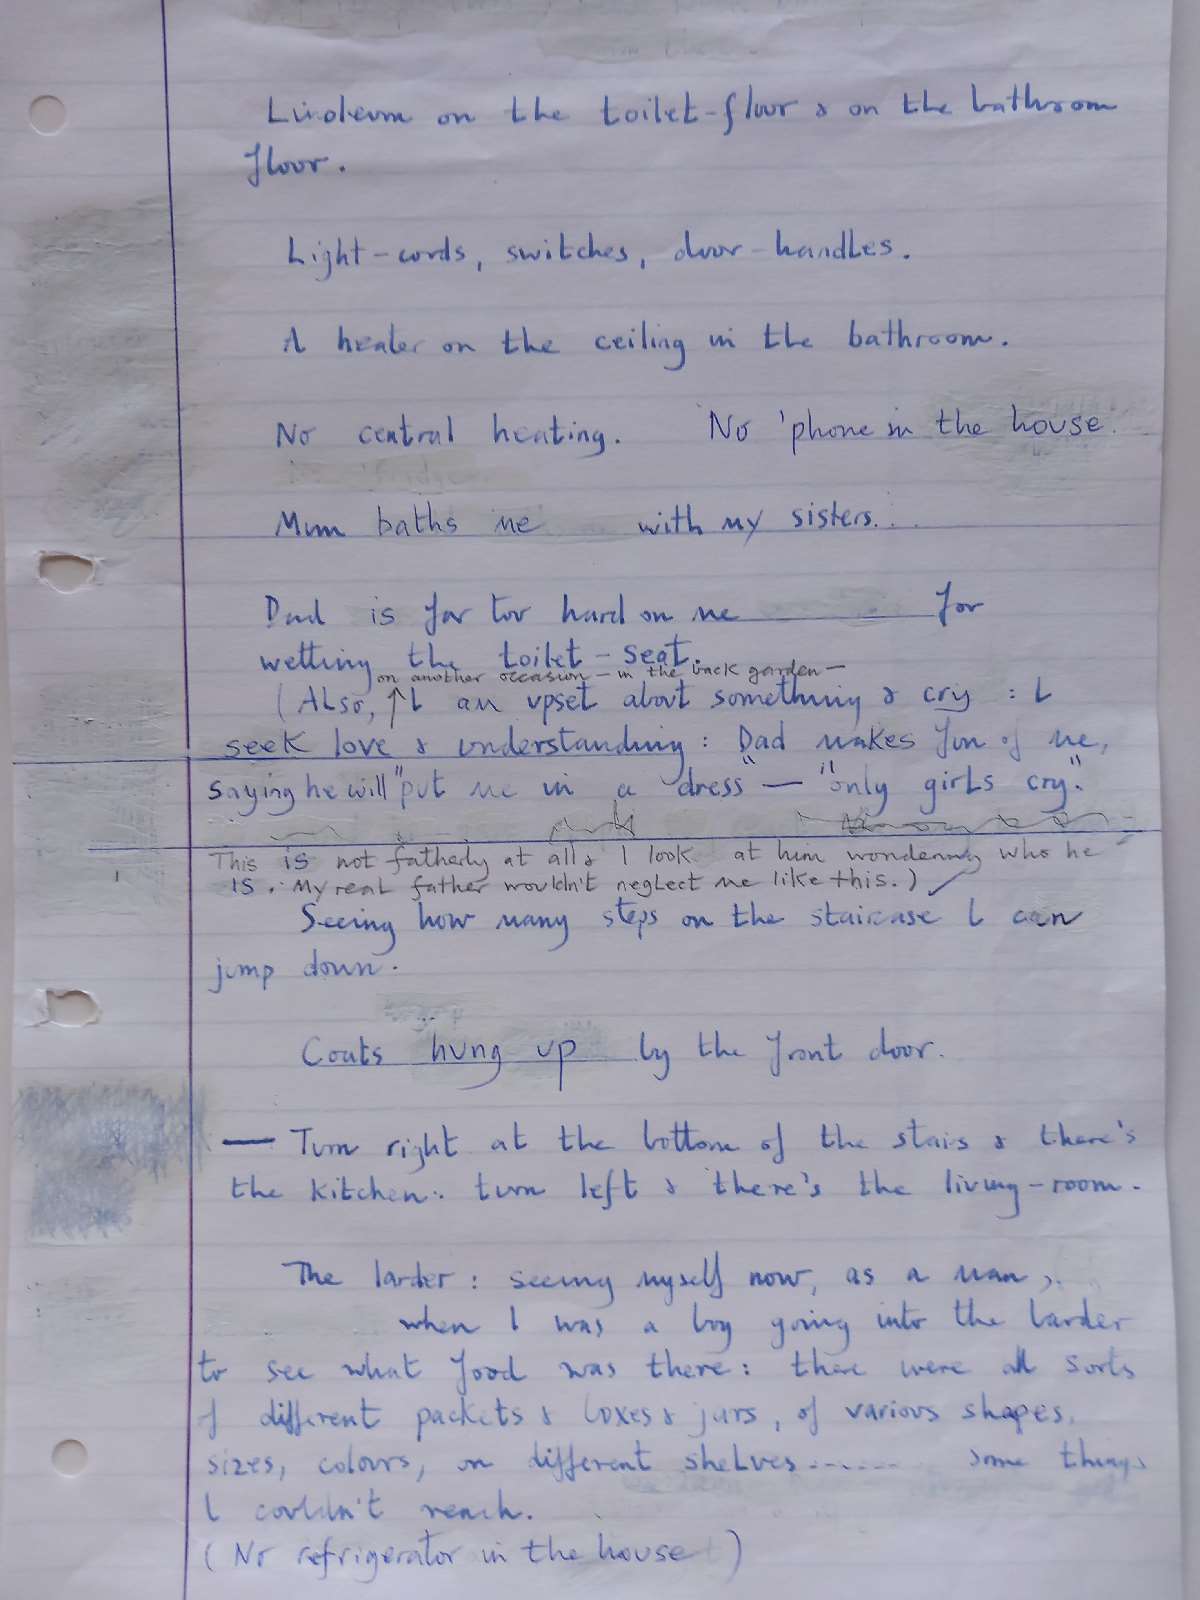 Linoleum on the toilet-floor & on the bathroom
floor.
Light-cords, switches, door-handles.
A heater on the ceiling in the bathroom.
No central heating. No 'phone in the house.
Mum baths me with my sisters...
Dad is far too hard on me for
wetting the toilet-seat.
on another occasion – in the back garden –
(Also, ↑ I am upset about something & cry : I
seek love & understanding : Dad makes fun of me,
saying he will "put me in a dress" — "only girls cry."
This is not fatherly at all & I look at him wondering who he
is. My real father wouldn't neglect me like this.) ✓
Seeing how many steps on the staircase I can
jump down.
Coats hung up by the front door.
— Turn right at the bottom of the stairs & there's
the kitchen: turn left & there's the living-room.
The larder : seeing myself now, as a man,
when I was a boy going into the larder
to see what food was there: there were all sorts
of different packets & boxes & jars, of various shapes,
sizes, colours, on different shelves....... some things
I couldn't reach.
(No refrigerator in the house)